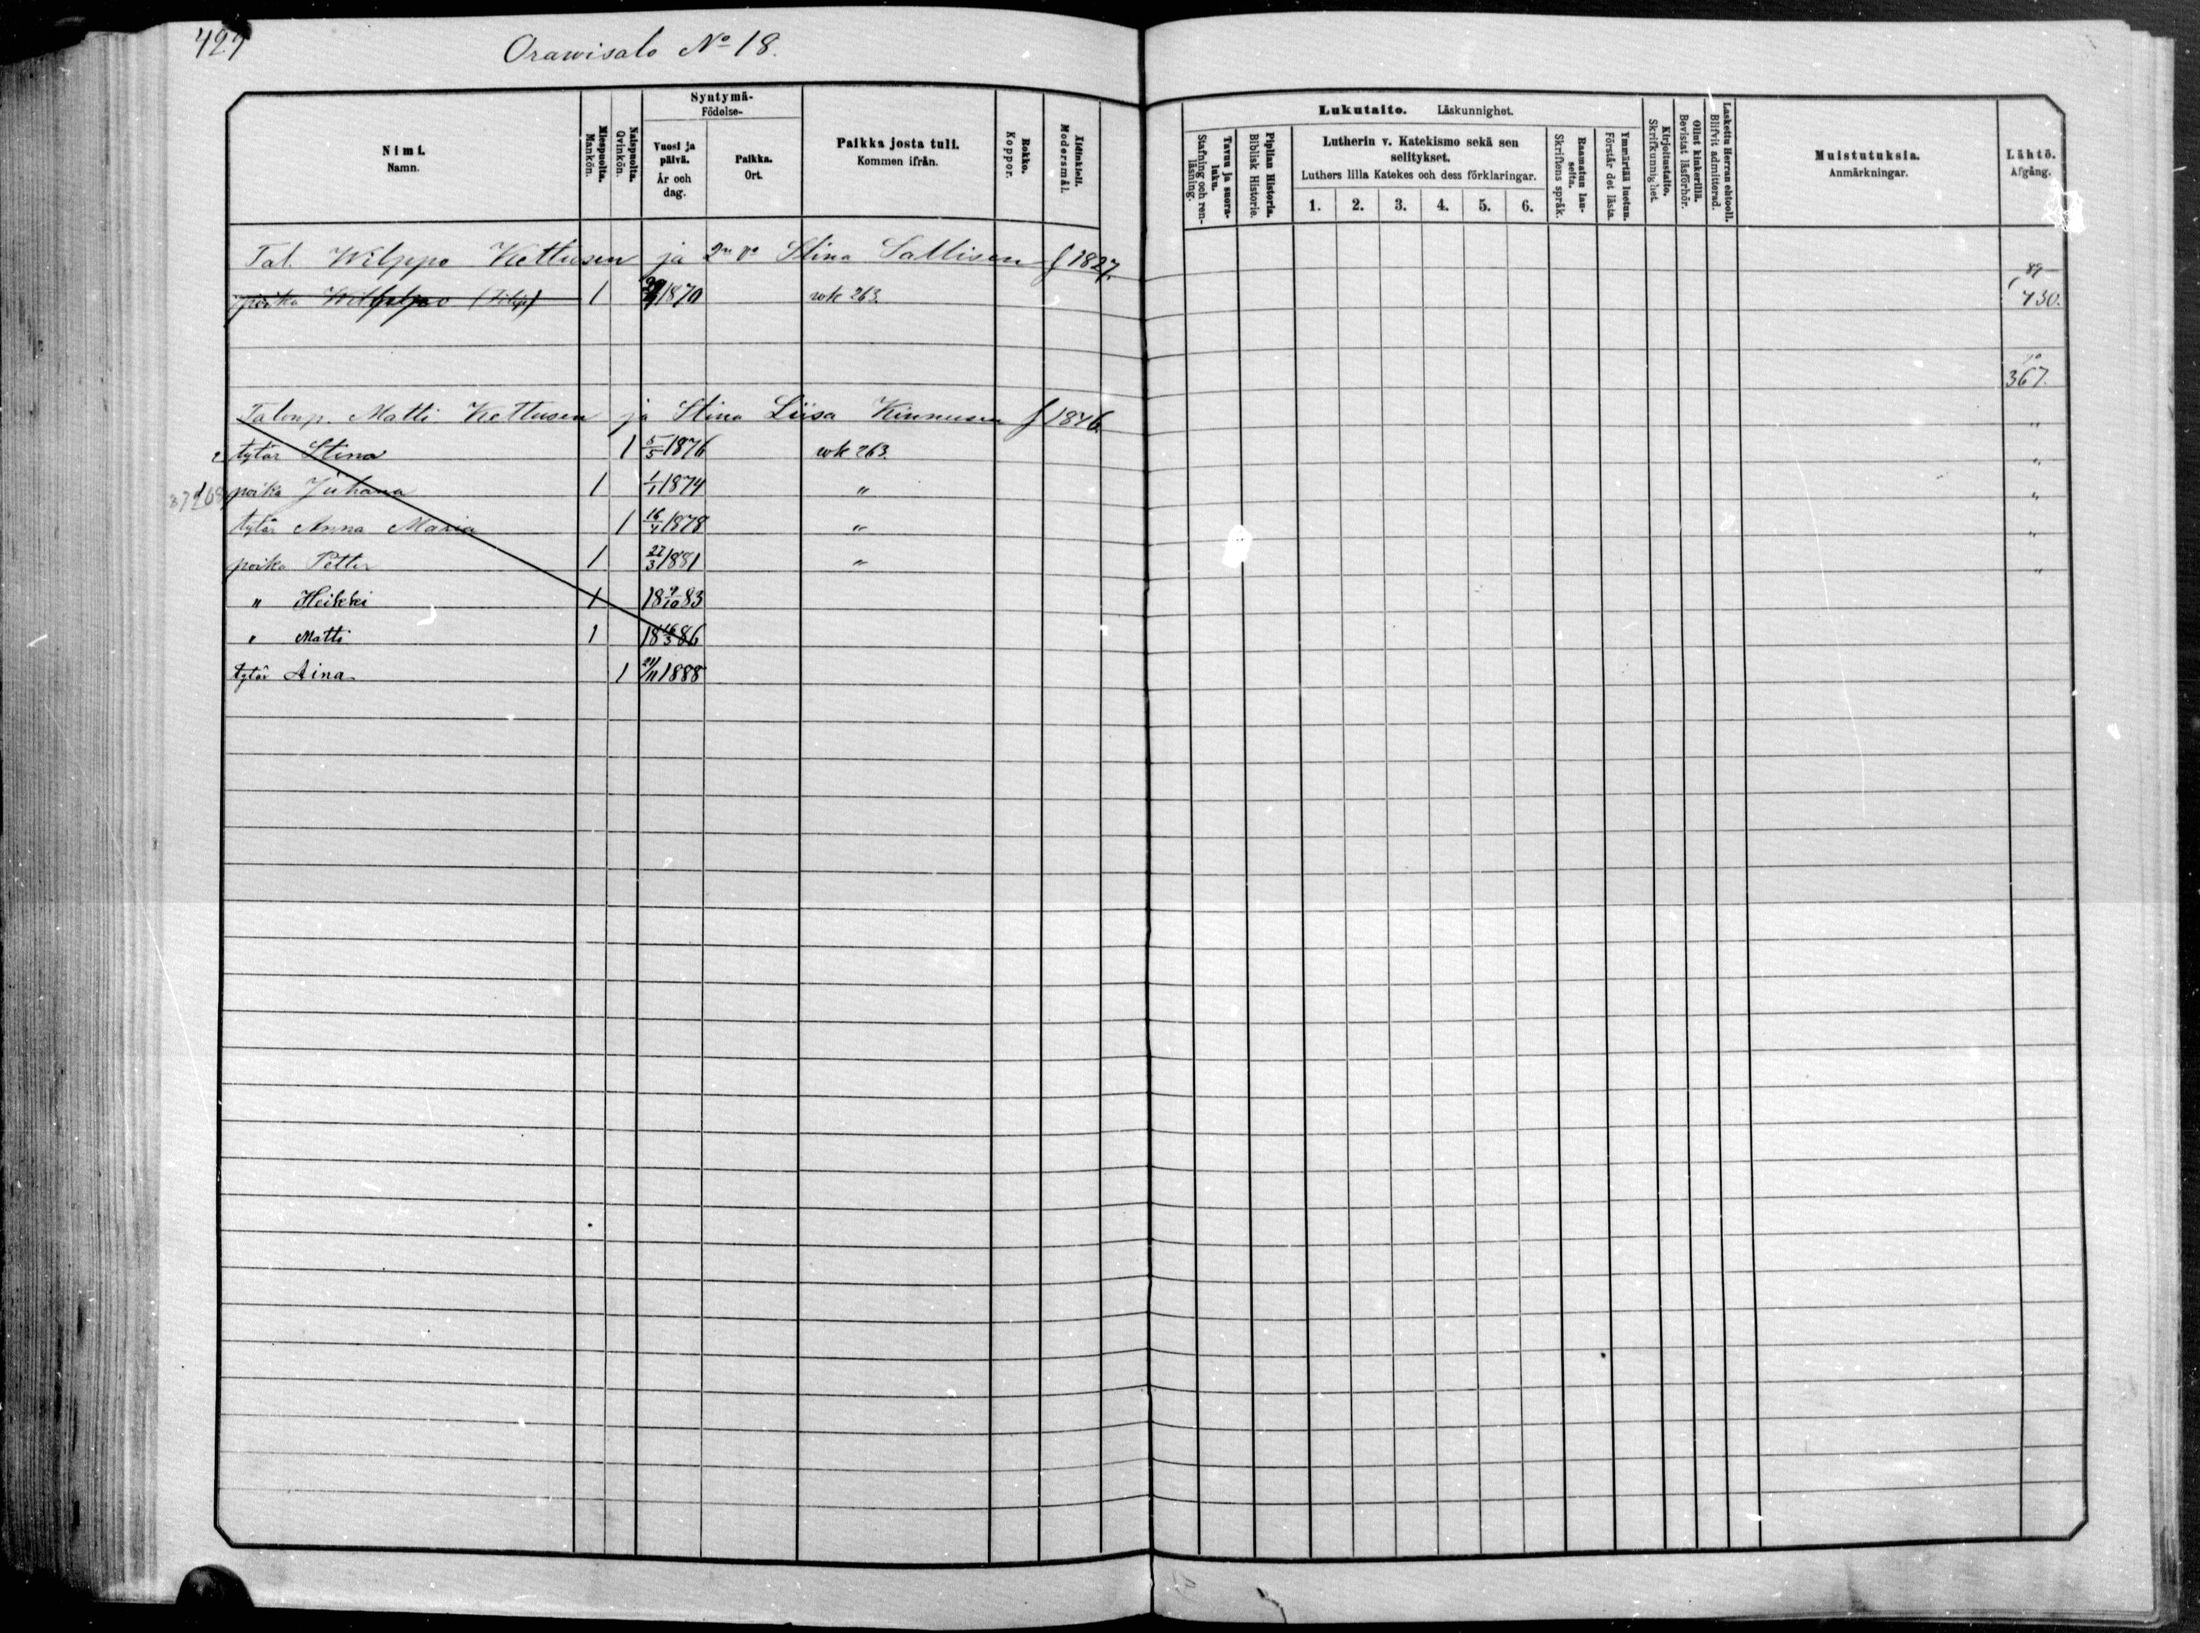 Orawisalo No 18.
Nimi.
Namn.
Miespuolta.
Mankön.
Naispuolta.
Qvinkön.
Syntymä-
Födelse-
Vuosi ja
päivä.
År och
dag.
Paikka.
Ort.
Paikka josta tuli.
Kommen ifrån.
Rokko.
Koppor.
Äidinkieli.
Modersmål.
Lukutaito. Läskunnighet.
Tavuu ja suora-
luku.
Stafning och ren-
läsning.
Piplian Historia.
Biblisk Historie.
Lutherin v. Katekismo sekä sen
selitykset.
Luthers lilla Katekes och dess förklaringar.
1. 2. 3. 4. 5. 6.
Raamatun lau-
seita.
Skriftens språk.
Ymmärtää luetun.
Förstår det lästa.
Kirjoitustaito.
Skrifkunnighet
Ollut kinkerillä.
Bevistat läsförhör.
Laskettu Herran ehtooll.
Blifvit admitterad.
Muistutuksia.
Anmärkningar.
Lähtö.
Afgång.
Tal. Wilppo Kettusen ja Stina Sallisen f 1827.
poika (Filip) 1 1870 rok 263. 89 430.
367.
Talonp. Matti Kettusen ja Stina Liisa Kinnusen f 1846. "
2 tytär Stina 1 5/5 1876 rok 263. "
poika Juhana 1 1/1 1874 " "
tytär Anna Maria 1 16/4 1878 " "
poika Petter 1 27/3 1881 " "
" Heikki 1 18 9/10 83
" Matti 1 18 16/3 86
tytär Aina 1 21/11 1888